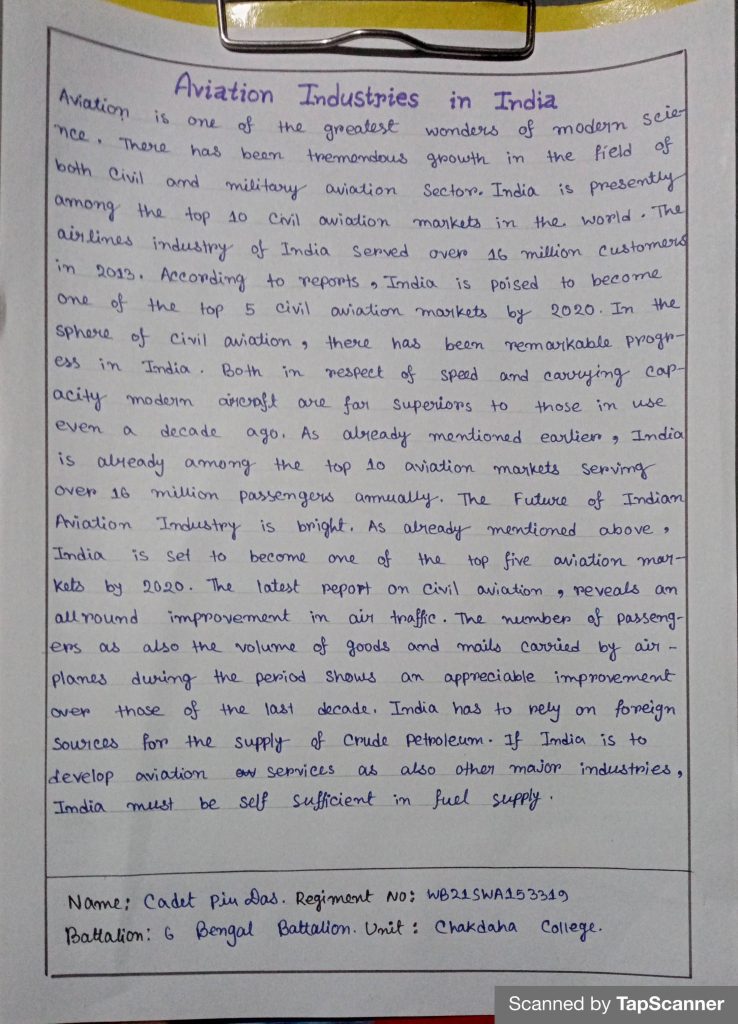 Aviation Industries in India
Aviation is one of the greatest wonders of modern scie-
nce. There has been tremondous growth in the field of
both Civil and military aviation Sector. India is presently
among the top 10 Civil aviation markets in the world. The
airlines industry of India served over 16 million customers
in 2013. According to reports, India is poised to become
one of the top 5 civil aviation markets by 2020. In the
sphere of civil aviation, there has been remarkable progr-
ess in India. Both in respect of speed and carrying cap-
acity modern aircraft are far superiors to those in use
even a decade ago. As already mentioned earlier, India
is already among the top 10 aviation markets serving
over 16 million passengers annually. The Future of Indian
Aviation Industry is bright. As already mentioned above,
India is set to become one of the top five aviation mar-
kets by 2020. The latest report on civil aviation, reveals an
all round improvement in air traffic. The number of passeng-
ers as also the volume of goods and mails carried by air-
planes during the period shows an appreciable improvement
over those of the last decade. India has to rely on foreign
sources for the supply of Crude Petroleum. If India is to
develop aviation services as also other major industries,
India must be self sufficient in fuel supply.
Name: Cadet Piu Das. Regiment No: WB21SWA153319
Battalion: 6 Bengal Battalion. Unit: Chakdaha College.
Scanned by TapScanner